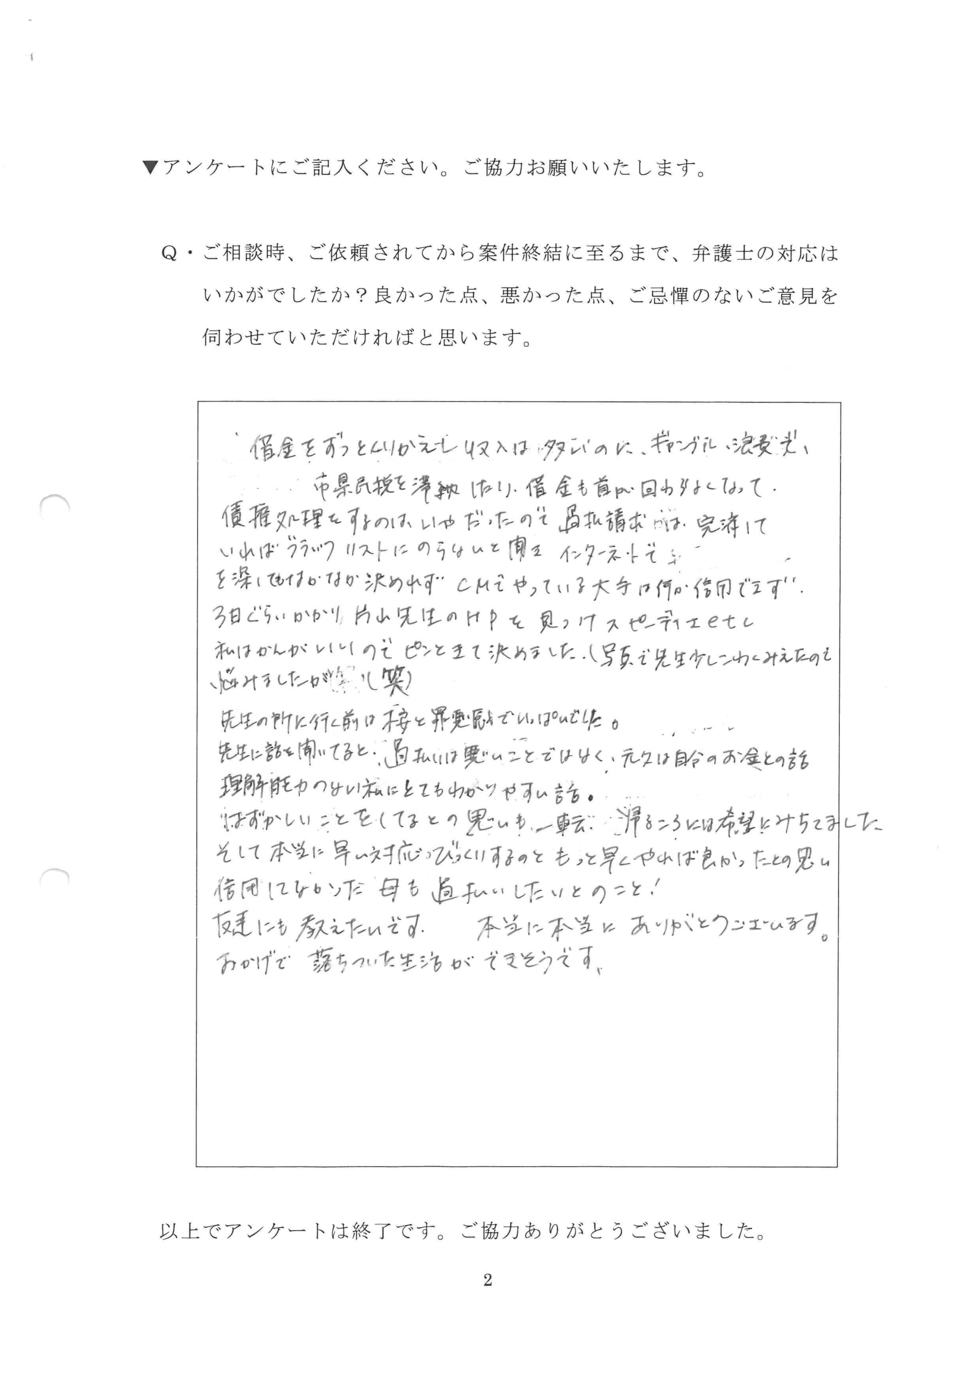 ▼アンケートにご記入ください。ご協力お願いいたします。
Q・ご相談時、ご依頼されてから案件終結に至るまで、弁護士の対応は
いかがでしたか？良かった点、悪かった点、ご忌憚のないご意見を
伺わせていただければと思います。
借金をずっとくりかえし収入は多いのに、ギャンブル、浪費、
市県民税を滞納したり、借金も首が回らなくなって、
債権処理をするのは、いやだったので過払請求は、完済して
いればブラックリストにのらないと聞き インターネットで
を探してもなかなか決められず CMでやっている大手は何か信用できず、
3日ぐらいかかり 片山先生のHPを見つけスピーディetc
私はかんがいいのでピンときて決めました。(写真で先生少しこわくみえたので
悩みましたが (笑)
先生の所に行く前は不安と罪悪感でいっぱいでした。
先生に話を聞いてると、過払いは悪いことではなく、元々は自分のお金との話
理解能力のない私にとてもわかりやすい話。
はずかしいことをしてるとの思いも一転、帰るころには希望にみちてました
そして本当に早い対応、びっくりするのと もっと早くやれば良かったとの思い
信用してなかった 母も 過払いしたいとのこと!
友達にも 教えたいです。 本当に本当に ありがとうございます。
おかげで 落ちついた生活が できそうです。
以上でアンケートは終了です。ご協力ありがとうございました。
2